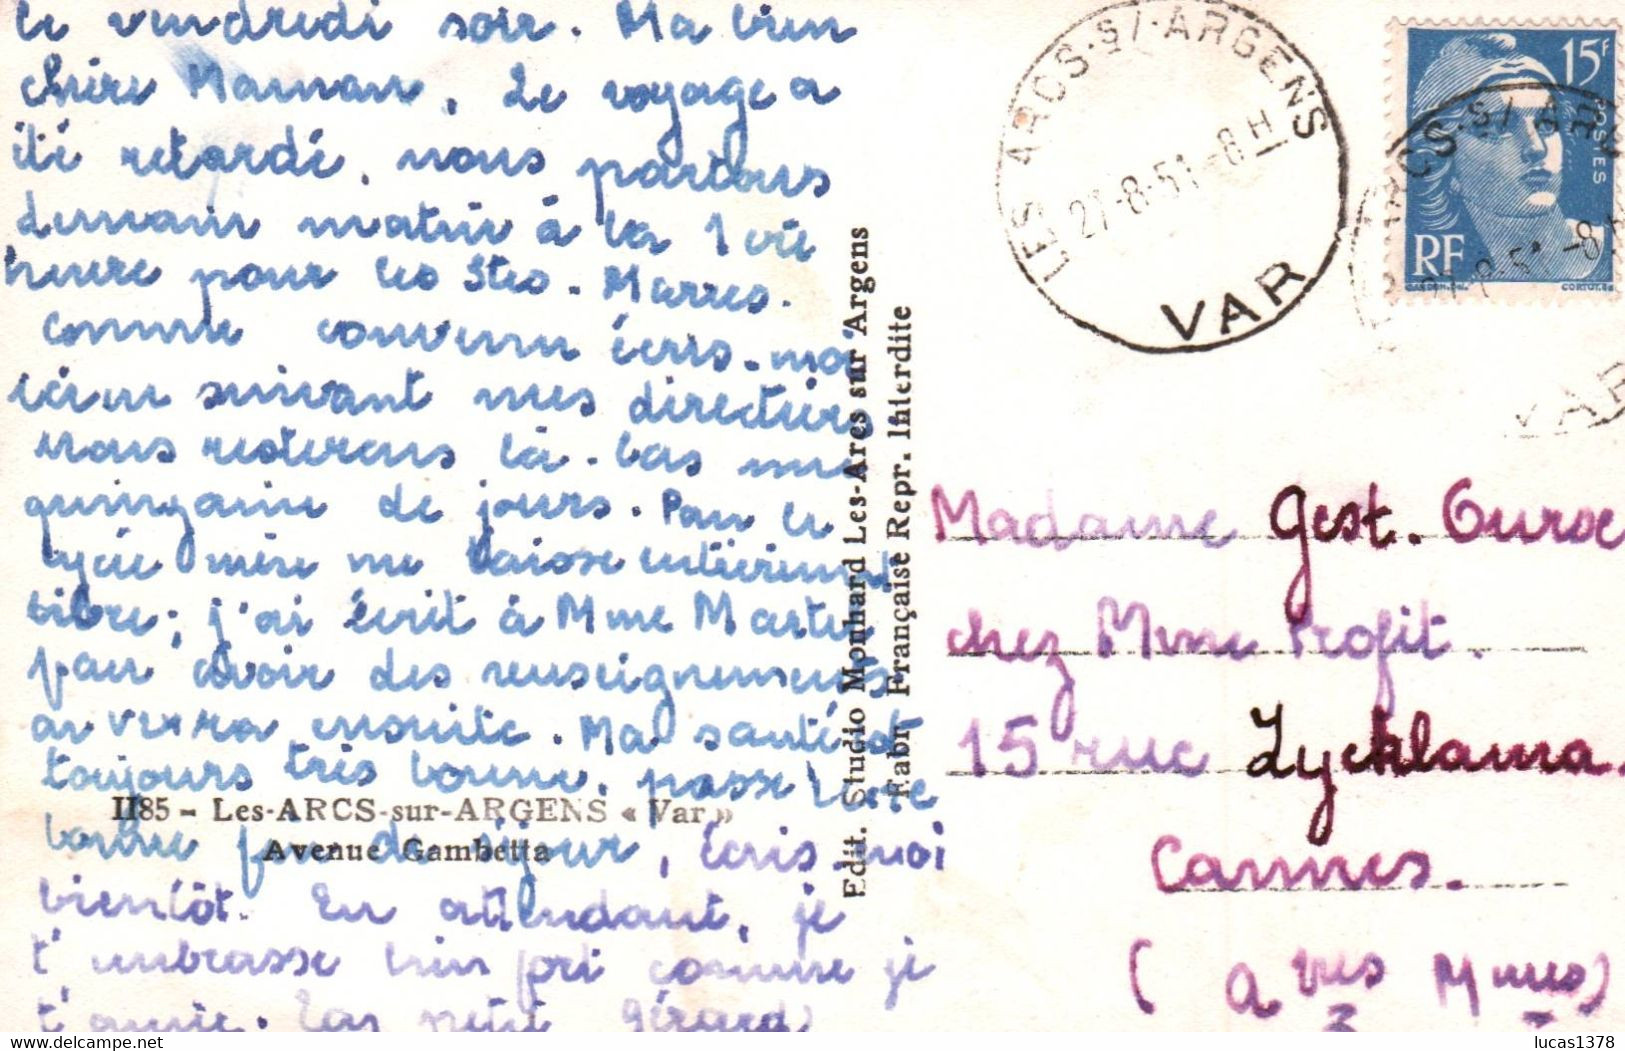 le vendredi soir. Ma bien
chère Maman. Le voyage a
été retardé, nous partons
demain matin à la 1ère
heure pour les Stes-Maries.
comme convenu écris-moi
suivant mes directives
nous resterons là-bas une
quinzaine de jours. Pour le
lycée mère me laisse entièrement
libre; j'ai écrit à Mme
pour avoir des renseignements
on verra ensuite. Ma santé est
toujours très bonne. passe une
bonne fin de séjour, écris moi
bientôt. En attendant, je
t'embrasse bien fort comme je
t'aime. Ton petit Gérard
II85 - Les-ARCS-sur-ARGENS « Var »
Avenue Gambetta
Edit. Studio Monhard Les-Arcs sur Argens
Fabr. Française Repr. Interdite
LES ARCS-S/-ARGENS
27-8-51-8H
VAR
15F
POSTES
RF
GANDON
CORTOT
ARCS-S/ARG
VAR
Madame Gest.
chez Mme Profit.
15 rue Lycklama.
Cannes.
(A
lucas1378